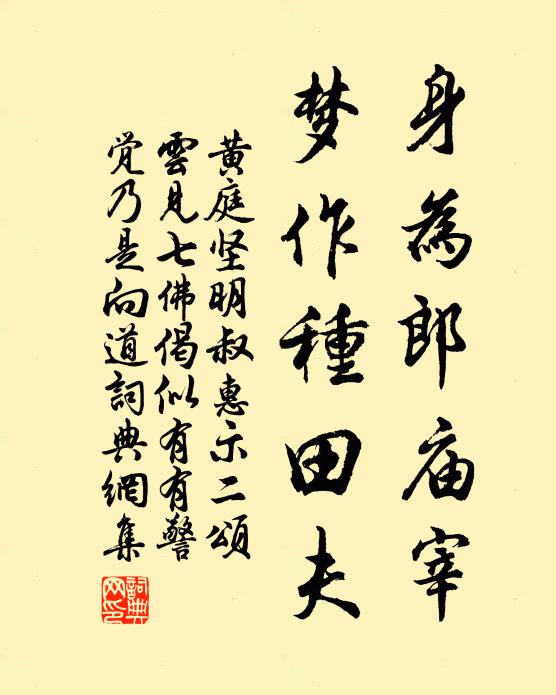 身為郎庙宰
梦作種田夫
黄庭坚明叔惠示二頌
雲見七佛偈似有有警
觉乃是向道詞典網集
詞典
网印